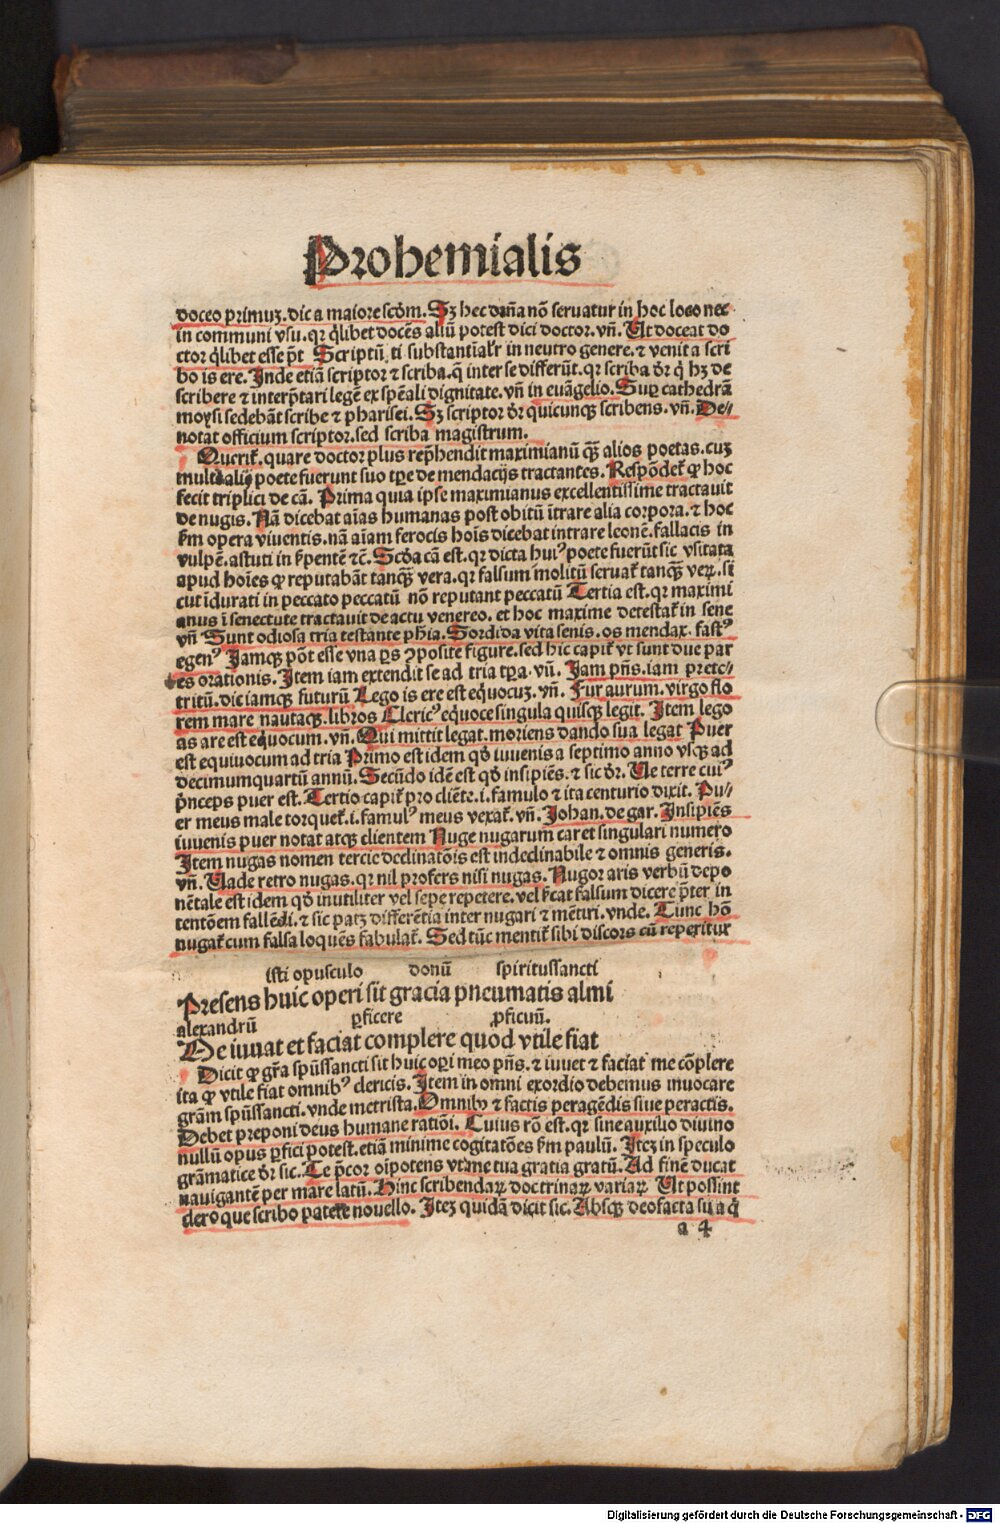 Prohemialis
doceo primuʒ. dic a maiore scḋm. Sʒ hec dr̄ña nō seruatur in hoc loco nec
in communi vsu. qꝛ q̇libet docēs aliū potest dici doctor. vñ. Ut doceat do
ctor q̇libet esse p̄t Scriptū, ti substantial'r in neutro genere. ⁊ venit a scri
bo is ere. Inde etiā scriptor ⁊ scriba. q̄ inter se differūt. qꝛ scriba dr̄ q̇ hʒ de
scribere ⁊ interp̄tari legē ex sp̄eali dignitate. vñ in euāgelio. Suꝑ cathedrā
moysi sedebāt scribe ⁊ pharisei. Sʒ scriptor dr̄ quicunqꝫ scribens. vñ. De⸗
notat officium scriptor. sed scriba magistrum.
Querit̄. quare doctor plus rep̄hendit maximianū qꝫ̄ alios poetas. cuʒ
multi alij poete fuerunt suo tꝑe de mendacijs tractantes. Respōdet̄ ꝙ hoc
fecit triplici de cā. Prima quia ipse maximianus excellentissime tractauit
de nugis. Nā dicebat aīas humanas post obitū ītrare alia corpora. ⁊ hoc
ẜm opera viuentis. nā aīam ferocis hoīs dicebat intrare leonē. fallacis in
vulpē. astuti in ẜpentē ⁊c̄. Scḋa cā est. qꝛ dicta huiꝰ poete fuerūt sic vsitata
apud hoīes ꝙ reputabāt tanqꝫ̄ vera. qꝛ falsum īmolitū seruat̄ tanqꝫ̄ veꝝ. si
cut īdurati in peccato peccatū nō reputant peccatū Tertia est. qꝛ maximi
anus ī senectute tractauit de actu venereo. et hoc maxime detestat̄ in sene
vñ Sunt odiosa tria testante pħia. Sordida vita senis. os mendax. fastꝰ
egenꝰ Iamqꝫ pōt esse vna ꝑs ꝯposite figure. sed hic capit̄ vt sunt due par
es orationis. Item iam extendit se ad tria tꝑa. vñ. Iam pn̄s. iam prete⸗
tritū. dic iamqꝫ futurū Lego is ere est eq̇uocuʒ. vñ. Fur aurum. virgo flo
rem mare nautaqꝫ. libros Clericꝰ eq̇uoce singula quisqꝫ legit. Item lego
as are est equocum. vñ. Qui mittit legat. moriens dando sua legat Puer
est equiuocum ad tria Primo est idem qḋ iuuenis a septimo anno vsqꝫ ad
decimumquartū annū. Secūdo idē est qḋ insipiēs. ⁊ sic dr̄. Ue terre cuiꝰ
p̄nceps puer est. Tertio capit̄ pro cliēte. i. famulo ⁊ ita centurio dixit. Pu⸗
er meus male torquet̄. i. famulꝰ meus vexat̄. vñ. Johan. de gar. Insipiēs
iuuenis puer notat atqꝫ clientem Nuge nugarum caret singulari numero
Item nugas nomen tercie declinatōis est indeclinabile ⁊ omnis generis.
vñ. Uade retro nugas. qꝛ nil profers nisi nugas. Nugor aris verbū depo
nētale est idem qḋ inutiliter vel sepe repetere. vel ẜcat falsum dicere p̄ter in
tentōem fallēdi. ⁊ sic patʒ differētia inter nugari ⁊ mētiri. vnde. Tunc hō
nugat̄ cum falsa loquēs fabulat̄. Sed tūc mentit̄ sibi discors cū reperitur
isti opusculo donū spiritussancti
Presens huic operi sit gracia pneumatis almi
alexandrū ꝑficere ꝓficuū.
Me iuuat et faciat complere quod vtile fiat
Dicit ꝙ gr̄a spūssancti sit huic oꝑi meo pn̄s. ⁊ iuuet ⁊ faciat me cōplere
ita ꝙ vtile fiat omnibꝰ clericis. Item in omni exordio debemus inuocare
grām spūssancti. vnde metrista. Omnibꝰ ⁊ factis peragēdis siue peractis.
Debet preponi deus humane ratiōi. Cuius rō est. qꝛ sine auxilio diuino
nullū opus ꝑfici potest. etiā minime cogitatōes ẜm paulū. Iteʒ in speculo
grāmatice dr̄ sic. Te p̄cor oīpotens vt me tua gratia gratū. Ad finē ducat
nauigantē per mare latū. Hinc scribendaꝝ doctrinaꝝ variaꝝ Ut possint
dero que scribo patere nouello. Iteʒ quidā dicit sic. Absqꝫ deo facta su a q̇
a 4
Digitalisierung gefördert durch die Deutsche Forschungsgemeinschaft - DFG